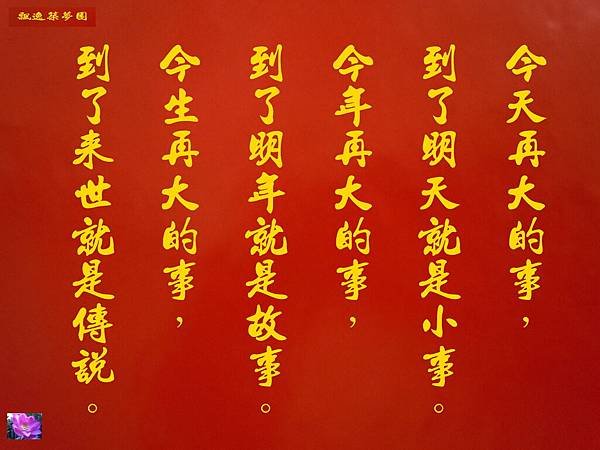 飄逸築夢園
今天再大的事，
到了明天就是小事。
今年再大的事，
到了明年就是故事。
今生再大的事，
到了来世就是傳説。